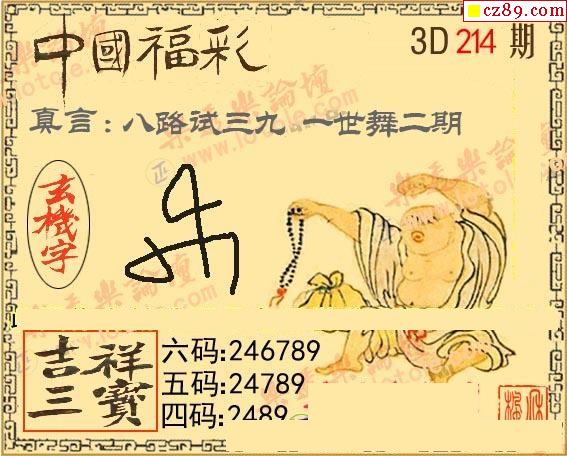 cz89.com
中國福彩
3D 214 期
真言：八路试三九 一世舞二期
玄機字
吉祥三寶
六码:246789
五码:24789
四码:2489